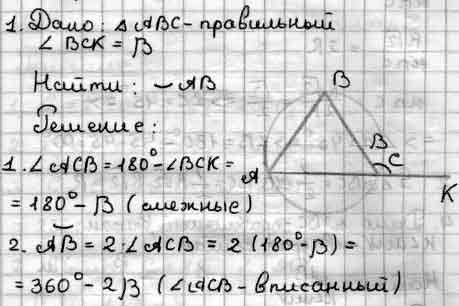 1. Дано: △ABC - правильный
∠BCK = β
Найти: ◡AB
Решение:
1. ∠ACB = 180° - ∠BCK =
= 180° - β (смежные)
2. ◡AB = 2·∠ACB = 2(180° - β) =
= 360° - 2β (∠ACB - вписанный)
B
β
C
A
K